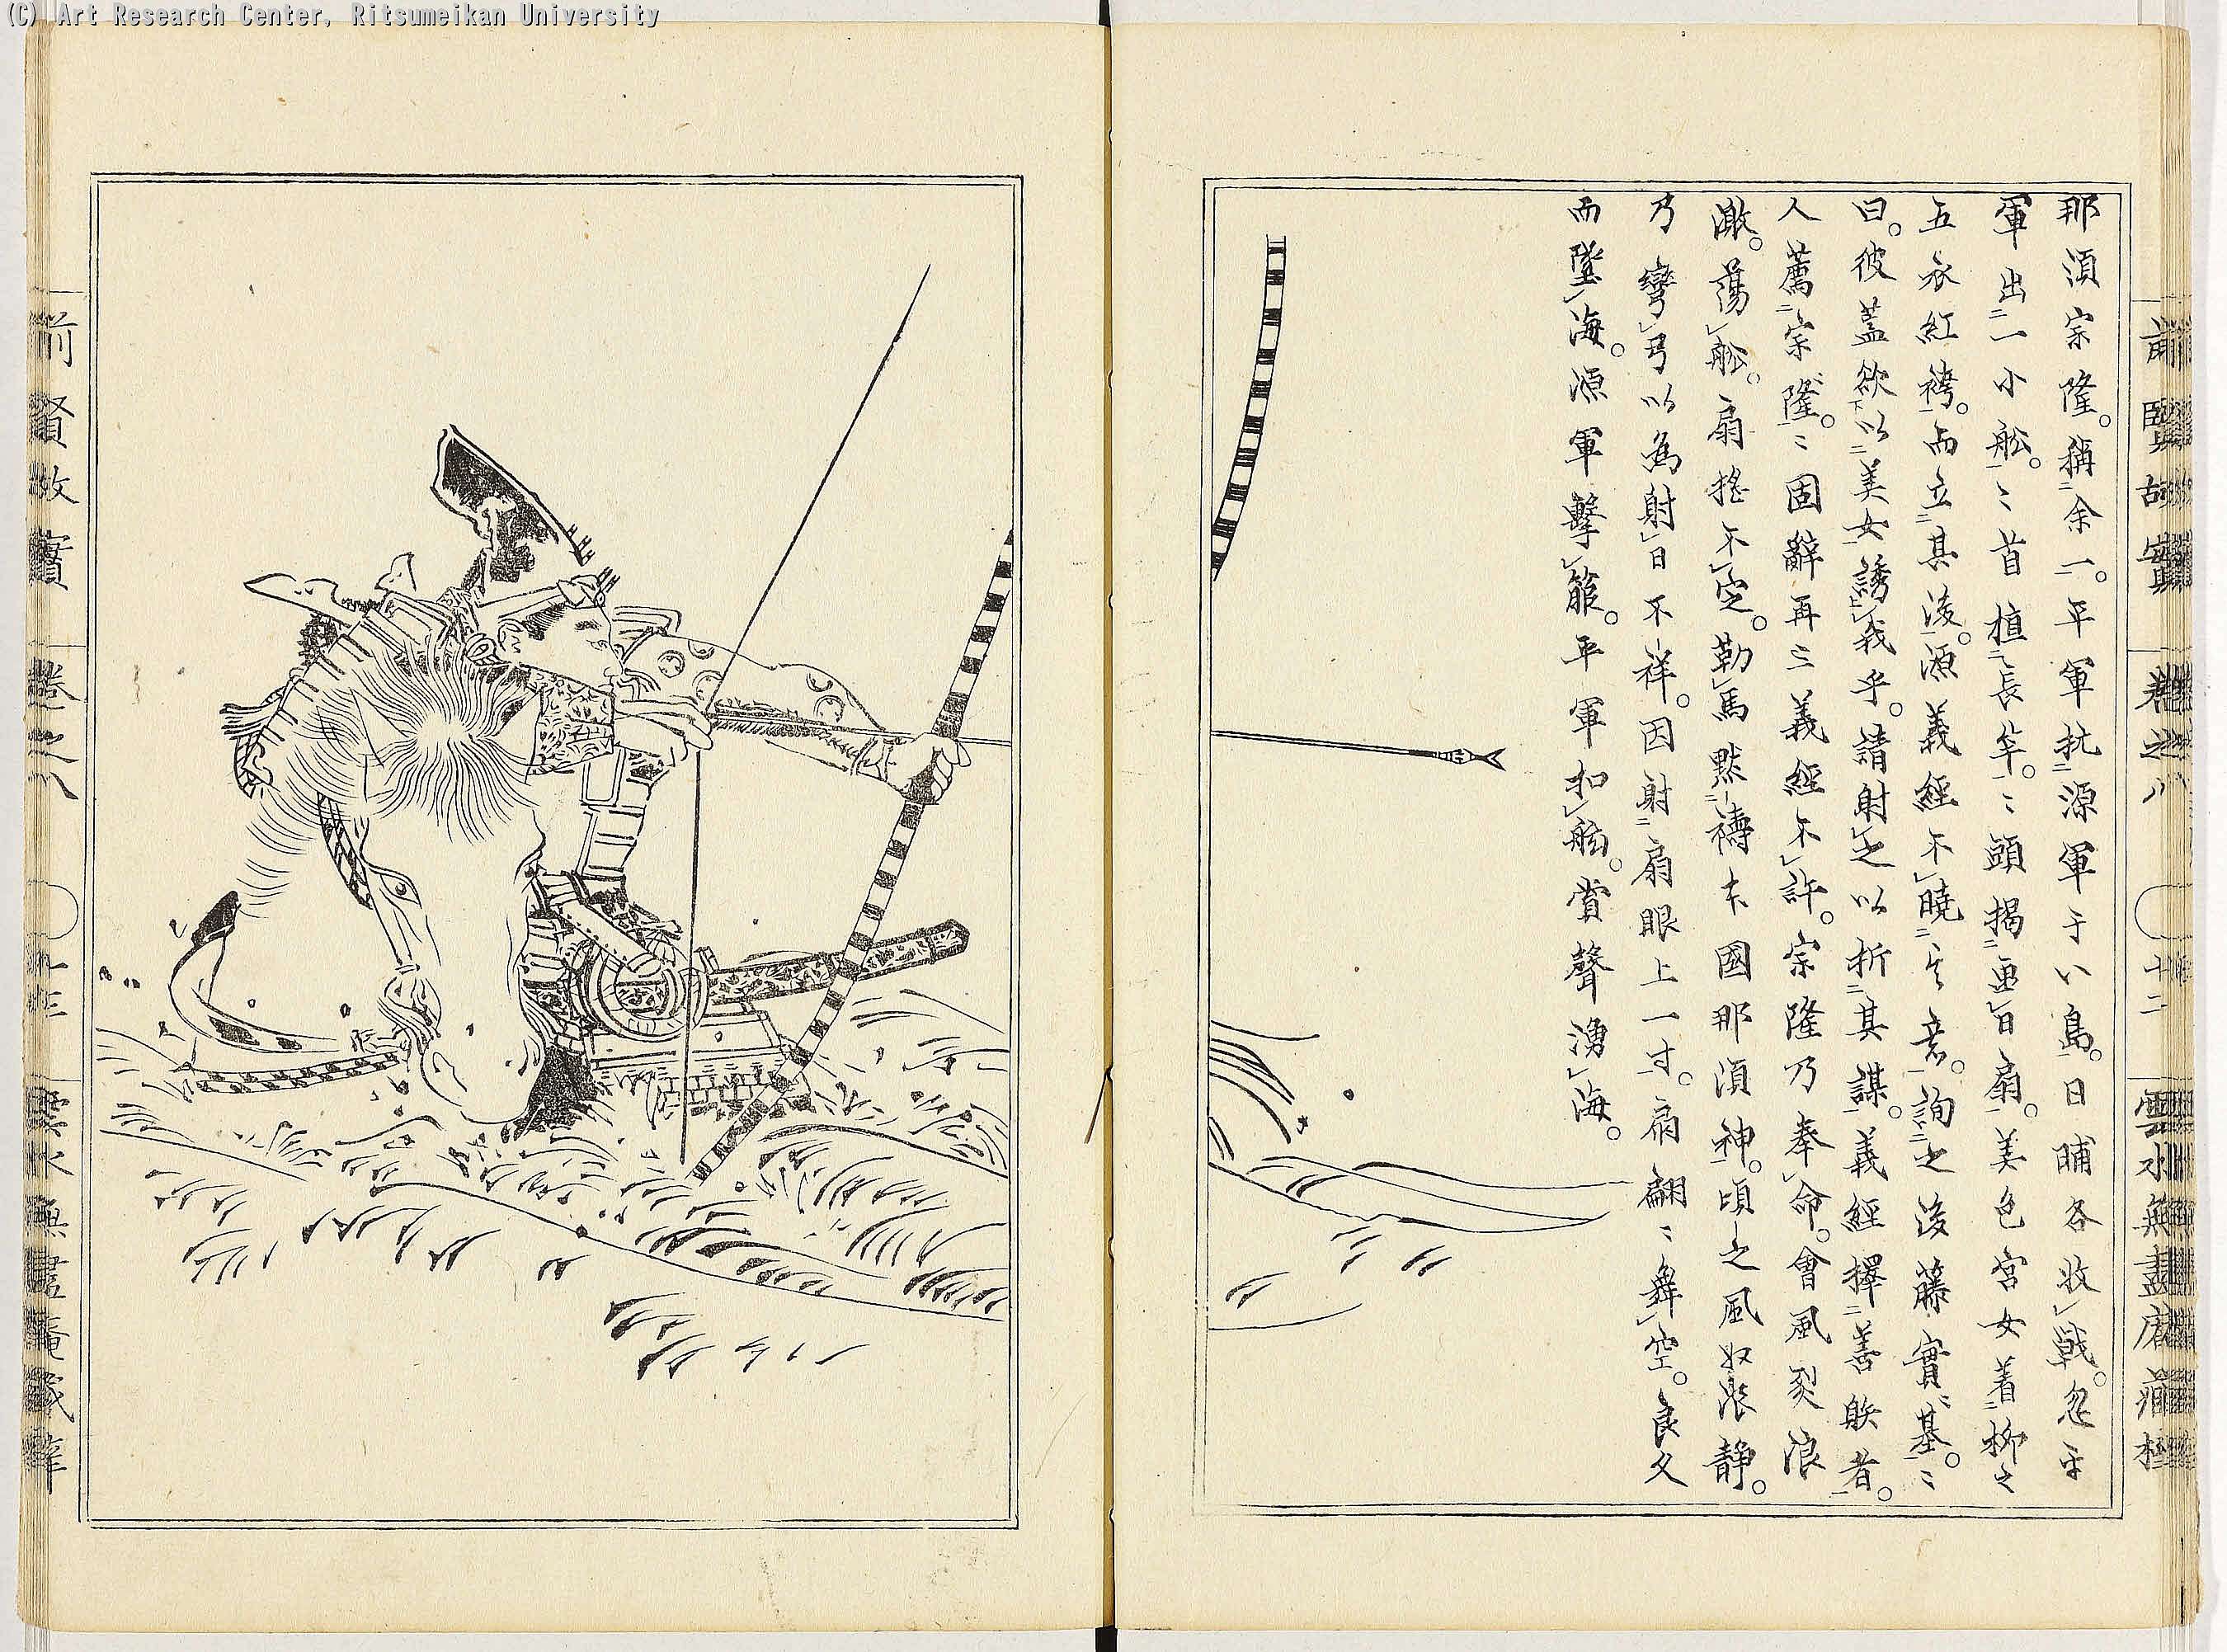 (C) Art Research Center, Ritsumeikan University
前賢故實 卷之八 十二 雲水無盡庵藏梓
那須宗隆。稱余一。平軍抗源軍于八島。日晡各收戰。忽平
軍出一小舩。〻首植長竿。〻頭揭畫日扇。美色宮女着柳之
五衣紅袴。而立其後。源義經不曉其意。詢之後藤實基。〻
曰。彼蓋欲以美女誘我乎。請射之以折其謀。義經擇善射者。
人薦宗隆。〻固辭再三義經不許。宗隆乃奉命。會風烈浪
激。蕩舩。扇搖不定。勒馬默禱本國那須神。頃之風收浪靜。
乃彎弓以為射日不祥。因射扇眼上一寸。扇翩〻舞空。良久
而墜海。源軍擊箙。平軍扣舷。賞聲湧海。
前賢故實 卷之八 雲水無盡庵藏梓